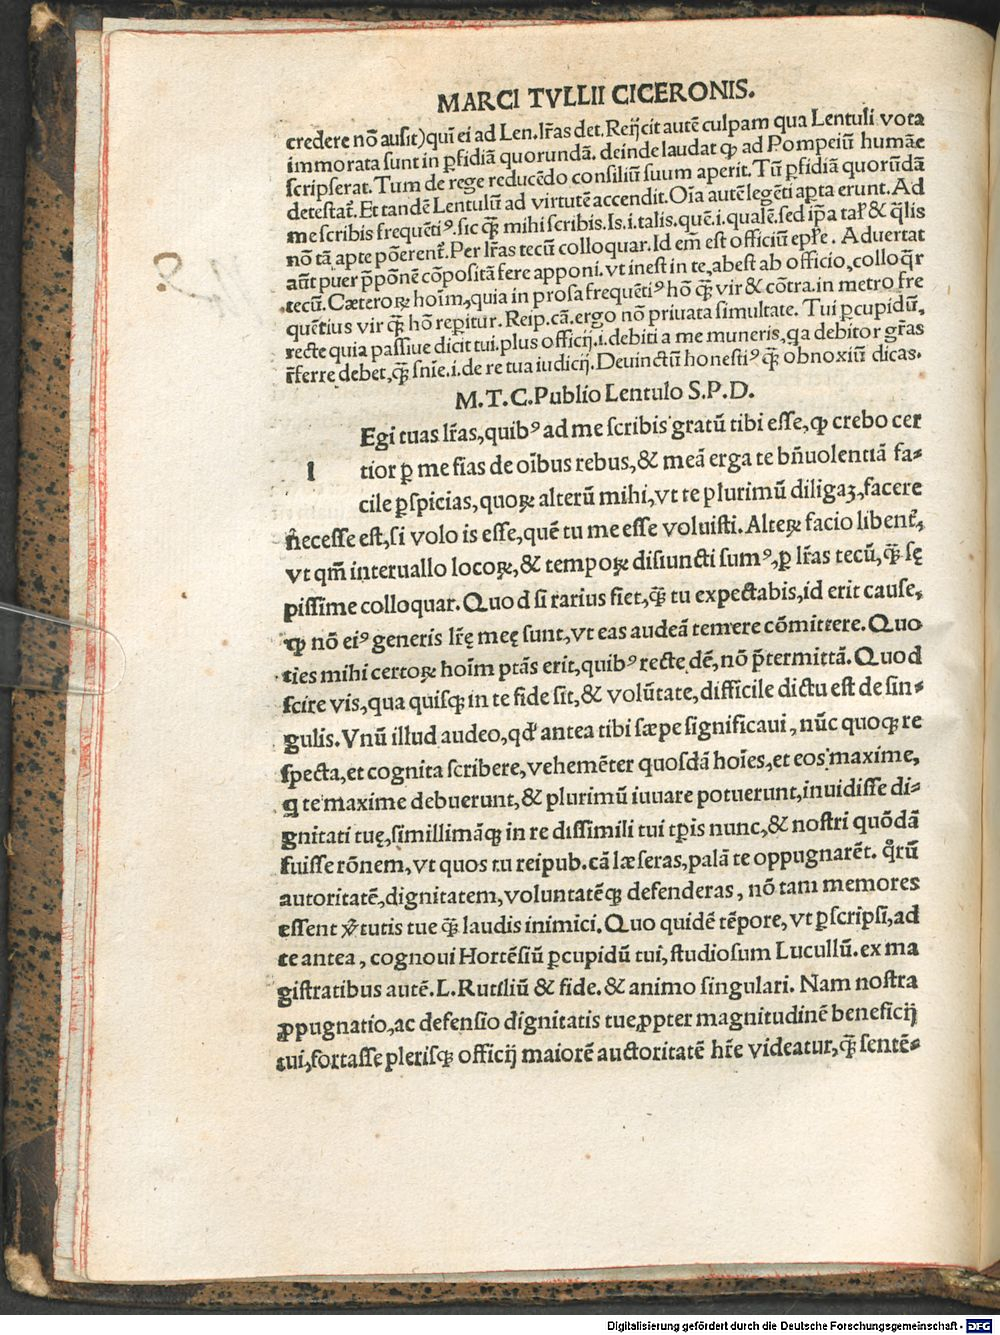 MARCI TVLLII CICERONIS.
credere nō ausit) quī ei ad Len. lr̄as det. Reijcit autē culpam qua Lentuli vota
immorata sunt in ꝑfidiā quorundā. deinde laudat ꝙ ad Pompeiū humāe
scripserat. Tum de rege reducēdo consiliū suum aperit. Tū ꝑfidiā quorūdā
detestat̄. Et tandē Lentulū ad virtutē accendit. Oīa autē legēti apta erunt. Ad
me scribis frequētiꝰ. sic ꝗ̄ mihi scribis. Is .i. talis. quē .i. qualē. sed ip̄a tal̄ & q̄lis
nō tā apte pōerent̄. Per lr̄as tecū colloquar. Id em̄ est officiū epl̄e. Aduertat
aūt puer p̄pōnē cōpositā fere apponi. vt inest in te, abest ab officio, colloq̄r
tecū. Cæteroꝝ hoīm, quia in prosa frequētiꝰ hō ꝗ̄ vir & cōtra. in metro fre
quētius vir ꝗ̄ hō reꝑitur. Reip. cā. ergo nō priuata simultate. Tui ꝑcupidū,
recte quia passiue dicit tui. plus officij .i. debiti a me muneris, qa debitor gr̄as
r̄ferre debet, ꝗ̄ snīe .i. de re tua iudicij. Deuinctū honestiꝰ ꝗ̄ obnoxiū dicas.
M. T. C. Publio Lentulo S. P. D.
Egi tuas lr̄as, quibꝰ ad me scribis gratū tibi esse, ꝙ crebo cer
l tior ꝑ me fias de oībus rebus, & meā erga te bn̄uolentiā fa⸗
cile ꝑspicias, quoꝝ alterū mihi, vt te plurimū diligaꝫ, facere
necesse est, si volo is esse, quē tu me esse voluisti. Alteꝝ facio libent̄,
vt qm̄ interuallo locoꝝ, & tempoꝝ disiuncti sumꝰ, ꝑ lr̄as tecū, ꝗ̄ sę
pissime colloquar. Quod si rarius fiet, ꝗ̄ tu expectabis, id erit cause,
ꝙ nō eiꝰ generis lr̄ę meę sunt, vt eas audeā temere cōmittere. Quo
ties mihi certoꝝ hoīm ptās erit, quibꝰ recte dē, nō p̄termittā. Quod
scire vis, qua quisꝙ in te fide sit, & volūtate, difficile dictu est de sin⸗
gulis. Vnū illud audeo, qd̓ antea tibi sæpe significaui, nūc quoꝙ re
specta, et cognita scribere, vehemēter quosdā hoīes, et eos maxime,
q te maxime debuerunt, & plurimū iuuare potuerunt, inuidisse di⸗
gnitati tuę, simillimāꝙ in re dissimili tui tp̄is nunc, & nostri quōdā
fuisse rōnem, vt quos tu reipub. cā læseras, palā te oppugnarēt. qͦrū
autoritatē, dignitatem, voluntatēꝙ defenderas, nō tam memores
essent v̓tutis tue ꝗ̄ laudis inimici. Quo quidē tēpore, vt ꝑscripsi, ad
te antea, cognoui Hortēsiū ꝑcupidū tui, studiosum Lucullū. ex ma
gistratibus autē. L. Rutiliū & fide. & animo singulari. Nam nostra
ꝓpugnatio, ac defensio dignitatis tue, ꝓpter magnitudinē beneficij
tui, fortasse plerisꝙ officij maiorē auctoritatē hr̄e videatur, ꝗ̄ sentē⸗
Digitalisierung gefördert durch die Deutsche Forschungsgemeinschaft - DFG